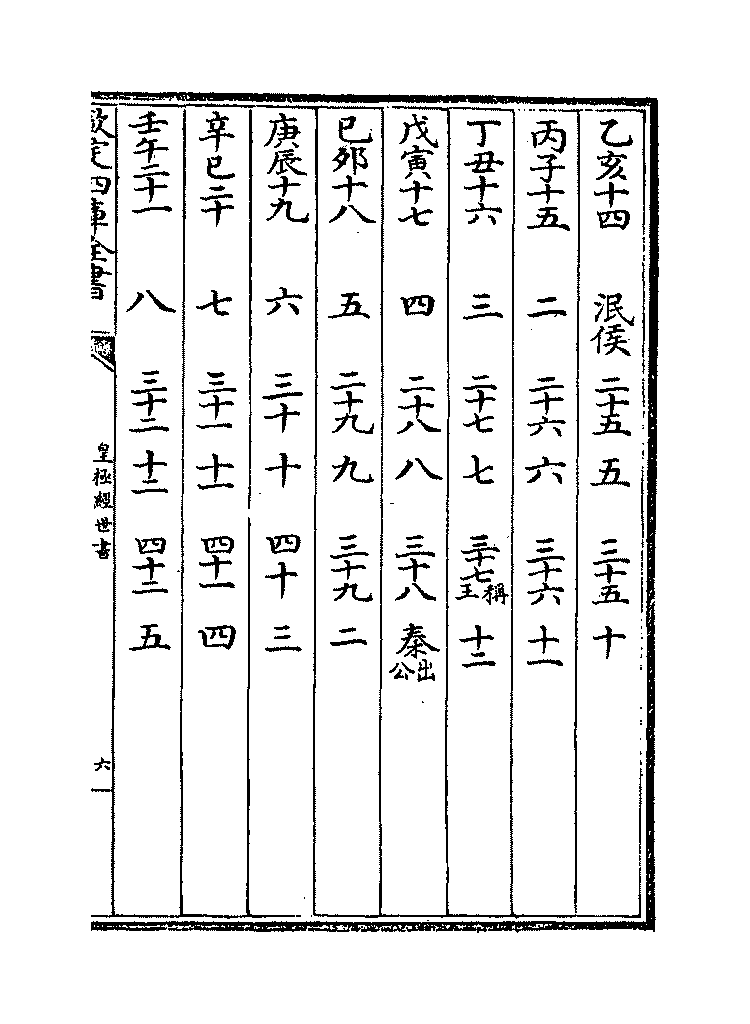 乙亥十四 泯侯 二十五 五 三十五 十
丙子十五 二 二十六 六 三十六 十一
丁丑十六 三 二十七 七 三十七 稱王 十二
戊寅十七 四 二十八 八 三十八 秦 出公
己夘十八 五 二十九 九 三十九 二
庚辰十九 六 三十 十 四十 三
辛巳二十 七 三十一 十一 四十一 四
壬午二十一 八 三十二 十二 四十二 五
欽定四庫全書 皇極經世書 六